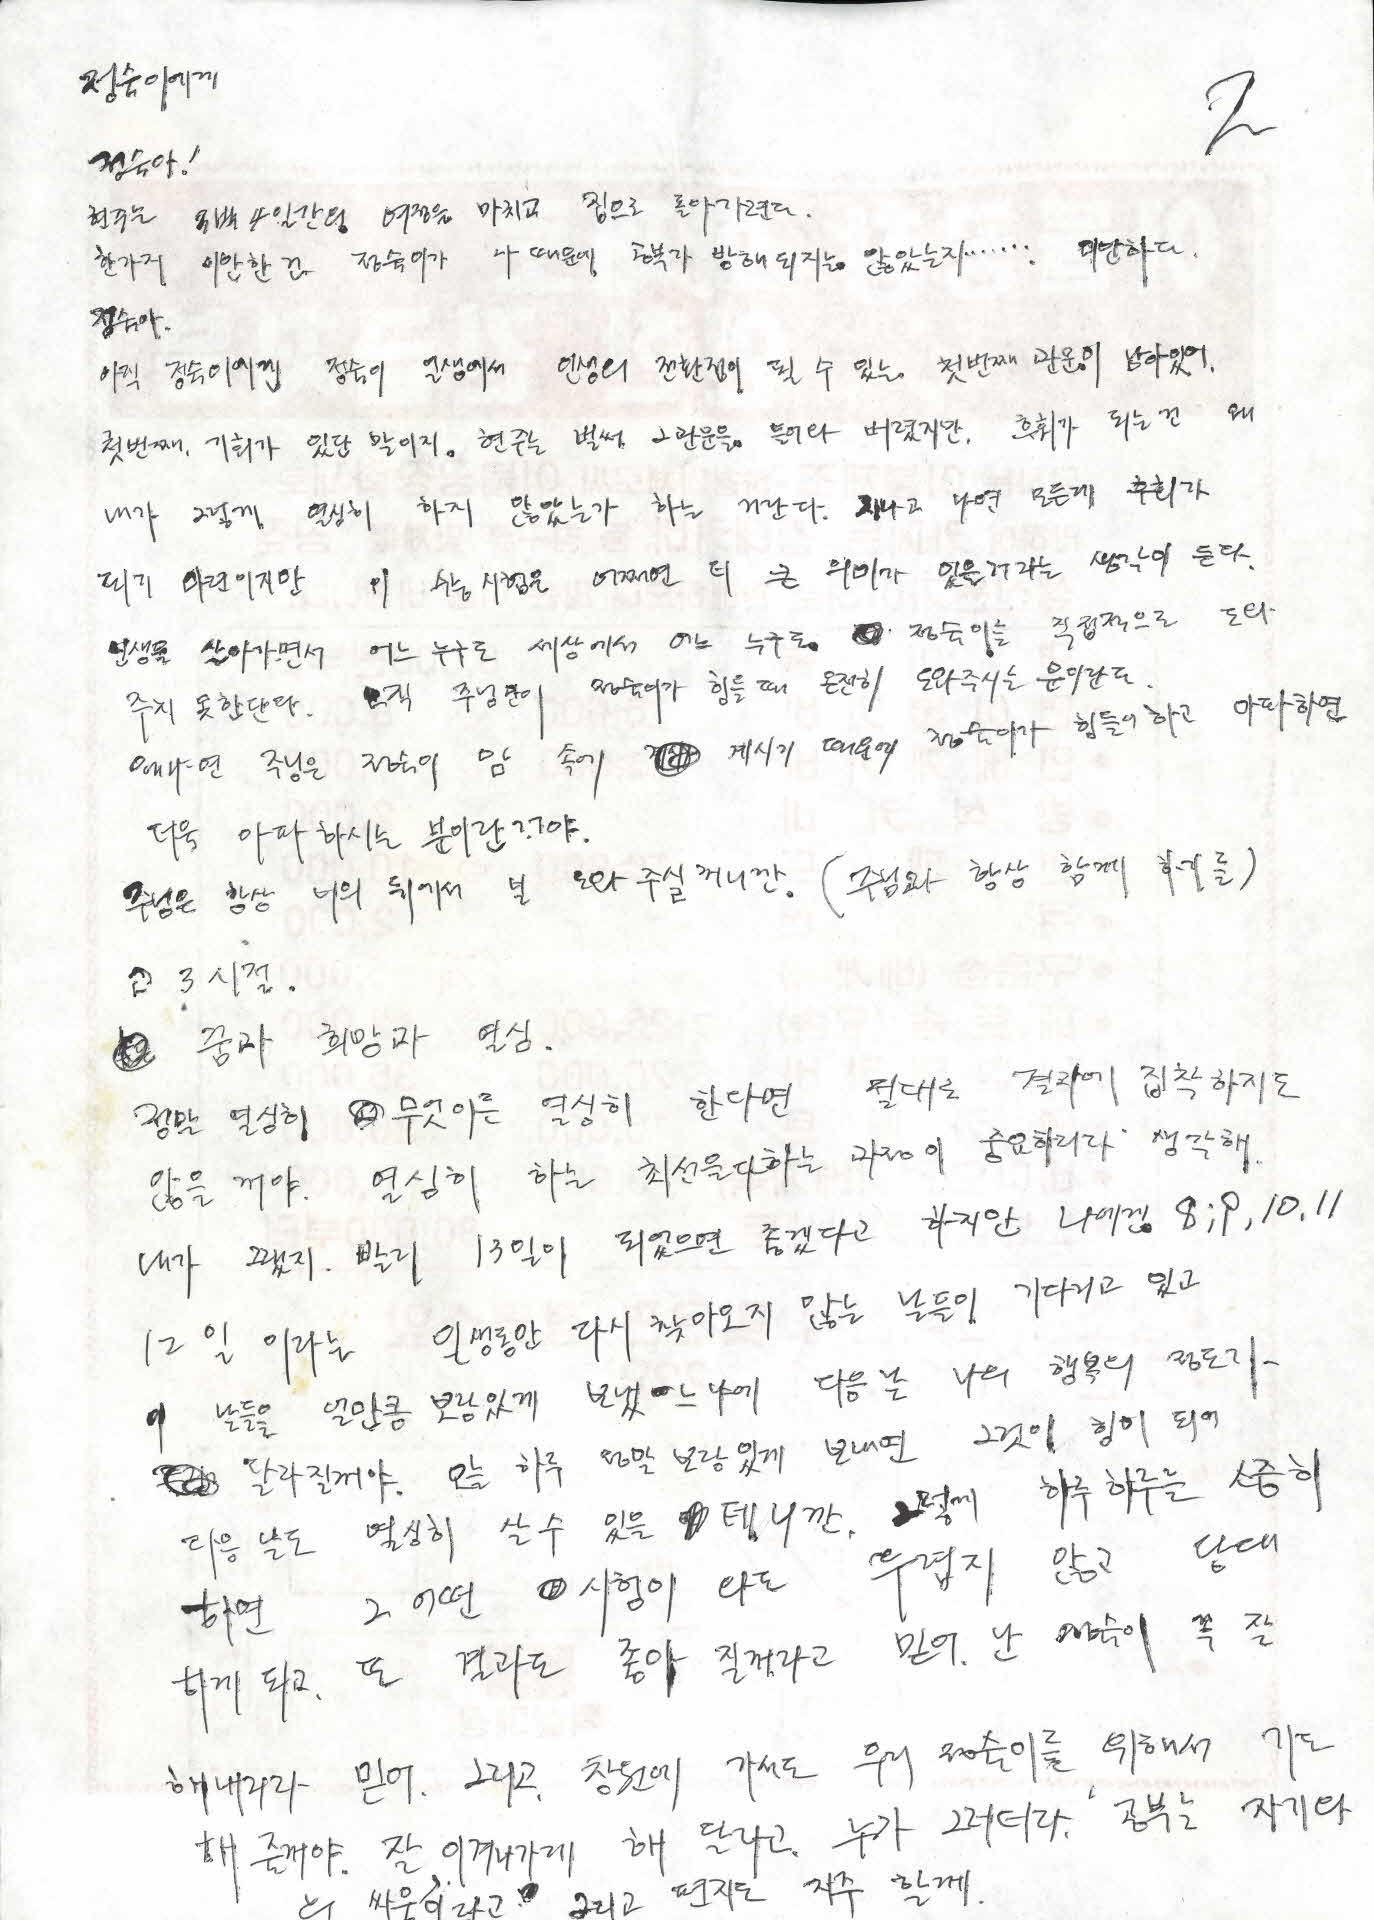 정숙이에게
2
정숙아!
현주는 4일간의 여정을 마치고 집으로 돌아가련다.
한가지 미안한 건 정숙이가 나 때문에 공부가 방해 되지는 않았는지....... 미안하다.
정숙아.
아직 정숙이에겐 정숙이 인생에서 인생의 전환점이 될 수 있는 첫번째 관문이 남아있어.
첫번째 기회가 있단 말이지. 현주는 벌써 그 관문을 들어와 버렸지만, 후회가 되는 건 왜
내가 그렇게 열심히 하지 않았는가 하는 거란다. 지나고 나면 모든게 후회가
되기 마련이지만 이 수능시험은 어쩌면 더 큰 의미가 있을거라는 생각이 든다.
인생을 살아가면서 어느 누구도 세상에서 어느 누구도 정숙이를 직접적으로 도와
주지 못한단다. 오직 주님만이 정숙이가 힘들때 온전히 도와주시는 분이란다.
왜냐면 주님은 정숙이 맘 속에 계시기 때문에 정숙이가 힘들어하고 아파하면
더욱 아파하시는 분이란거야.
주님은 항상 너의 뒤에서 널 도와 주실꺼니깐. (주님과 항상 함께 하기를)
고 3 시절.
꿈과 희망과 열심.
정말 열심히 무엇이든 열심히 한다면 절대로 결과에 집착하지도
않을 꺼야. 열심히 하는 최선을 다하는 과정이 중요하리라 생각해.
내가 그랬지. 빨리 13일이 되었으면 좋겠다고 하지만 나에겐 8, 9, 10, 11
12일 이라는 인생동안 다시 찾아오지 않는 날들이 기다리고 있고
이 날들을 얼만큼 보람있게 보냈느냐에 다음날 나의 행복의 정도가
달라질꺼야. 오늘 하루 정말 보람있게 보내면 그것이 힘이 되어
다음 날도 열심히 살 수 있을 테니깐. 그렇게 하루하루를 소중히
하면 그 어떤 시험이 와도 두렵지 않고 담대
하게 되고, 또 결과도 좋아 질꺼라고 믿어. 난 정숙이 꼭 잘
해내리라 믿어. 그리고, 창원에 가서도 우리 정숙이를 위해서 기도
해 줄꺼야. 잘 이겨나가게 해 달라고. 누가 그러더라, '공부는 자기와
의 싸움이라고' 그리고 편지도 자주 할게.